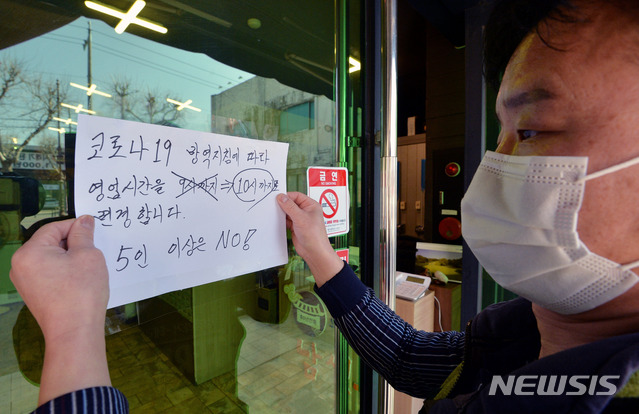 코로나19 방역지침에 따라
영업시간을 9시까지 ⇒ 10시까지로
변경 합니다.
5인 이상은 NO!
금연
NEWSIS